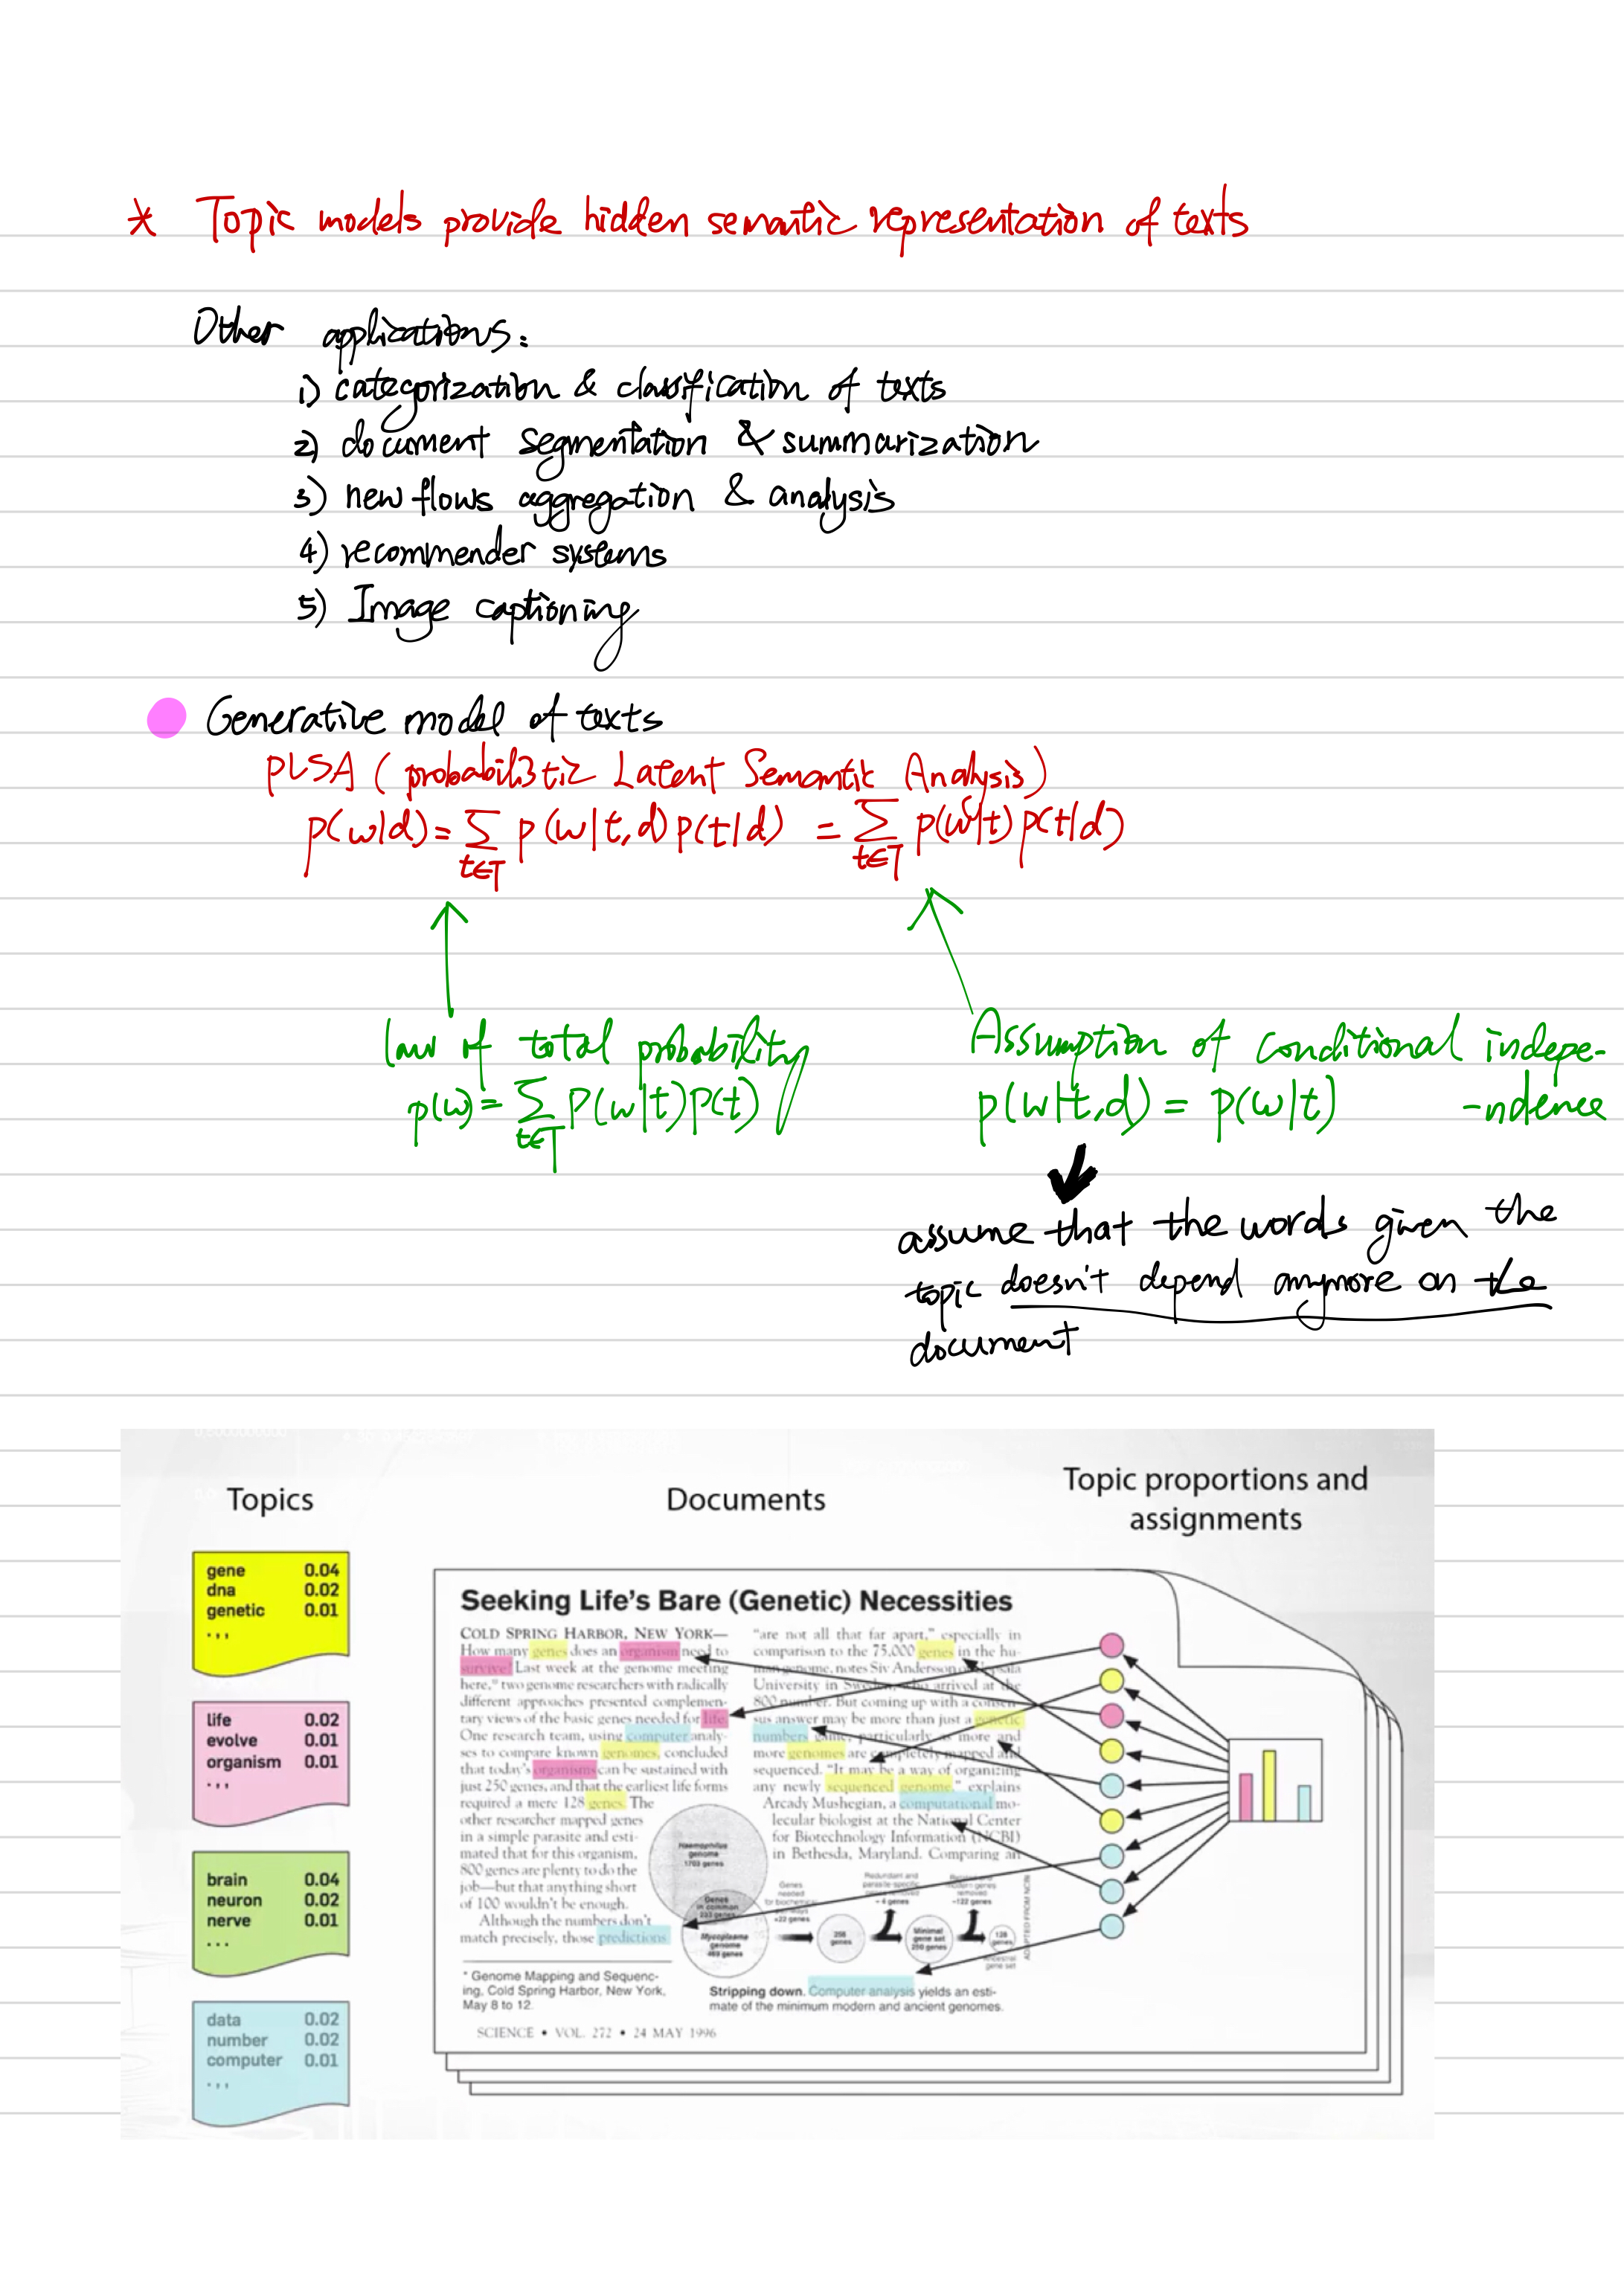 * Topic models provide hidden semantic representation of texts
Other applications:
1) categorization & classification of texts
2) document segmentation & summarization
3) new flows aggregation & analysis
4) recommender systems
5) Image captioning
Generative model of texts
PLSA (probabilistic Latent Semantic Analysis)
p(w|d) = ∑ p(w|t,d) p(t|d) = ∑ p(w|t) p(t|d)
t∈T t∈T
law of total probability
p(w) = ∑ P(w|t) P(t)
t∈T
Assumption of conditional indepe-
p(w|t,d) = p(w|t) -ndence
assume that the words given the
topic doesn't depend anymore on the
document
Topics
Documents
Topic proportions and
assignments
gene 0.04
dna 0.02
genetic 0.01
...
life 0.02
evolve 0.01
organism 0.01
...
brain 0.04
neuron 0.02
nerve 0.01
...
data 0.02
number 0.02
computer 0.01
...
Seeking Life's Bare (Genetic) Necessities
COLD SPRING HARBOR, NEW YORK—
How many genes does an organism need to
survive? Last week at the genome meeting
here,* two genome researchers with radically
different approaches presented complemen-
tary views of the basic genes needed for life.
One research team, using computer analy-
ses to compare known genomes, concluded
that today's organisms can be sustained with
just 250 genes, and that the earliest life forms
required a mere 128 genes. The
other researcher mapped genes
in a simple parasite and esti-
mated that for this organism,
800 genes are plenty to do the
job—but that anything short
of 100 wouldn't be enough.
Although the numbers don't
match precisely, those predictions
* Genome Mapping and Sequenc-
ing, Cold Spring Harbor, New York,
May 8 to 12.
"are not all that far apart," especially in
comparison to the 75,000 genes in the hu-
man genome, notes Siv Andersson of Uppsala
University in Sweden, who arrived at the
800 number. But coming up with a consen-
sus answer may be more than just a genetic
numbers game, particularly as more and
more genomes are completely mapped and
sequenced. "It may be a way of organizing
any newly sequenced genome," explains
Arcady Mushegian, a computational mo-
lecular biologist at the National Center
for Biotechnology Information (NCBI)
in Bethesda, Maryland. Comparing an
Haemophilus
genome
1703 genes
Genes
in common
233 genes
Mycoplasma
genome
469 genes
Genes
needed
for biochemical
pathways
+22 genes
Redundant and
parasite-specific
- 4 genes
removed
-122 genes
256
genes
Minimal
gene set
250 genes
128
genes
gene set
ADAPTED FROM NCBI
Stripping down. Computer analysis yields an esti-
mate of the minimum modern and ancient genomes.
SCIENCE • VOL. 272 • 24 MAY 1996